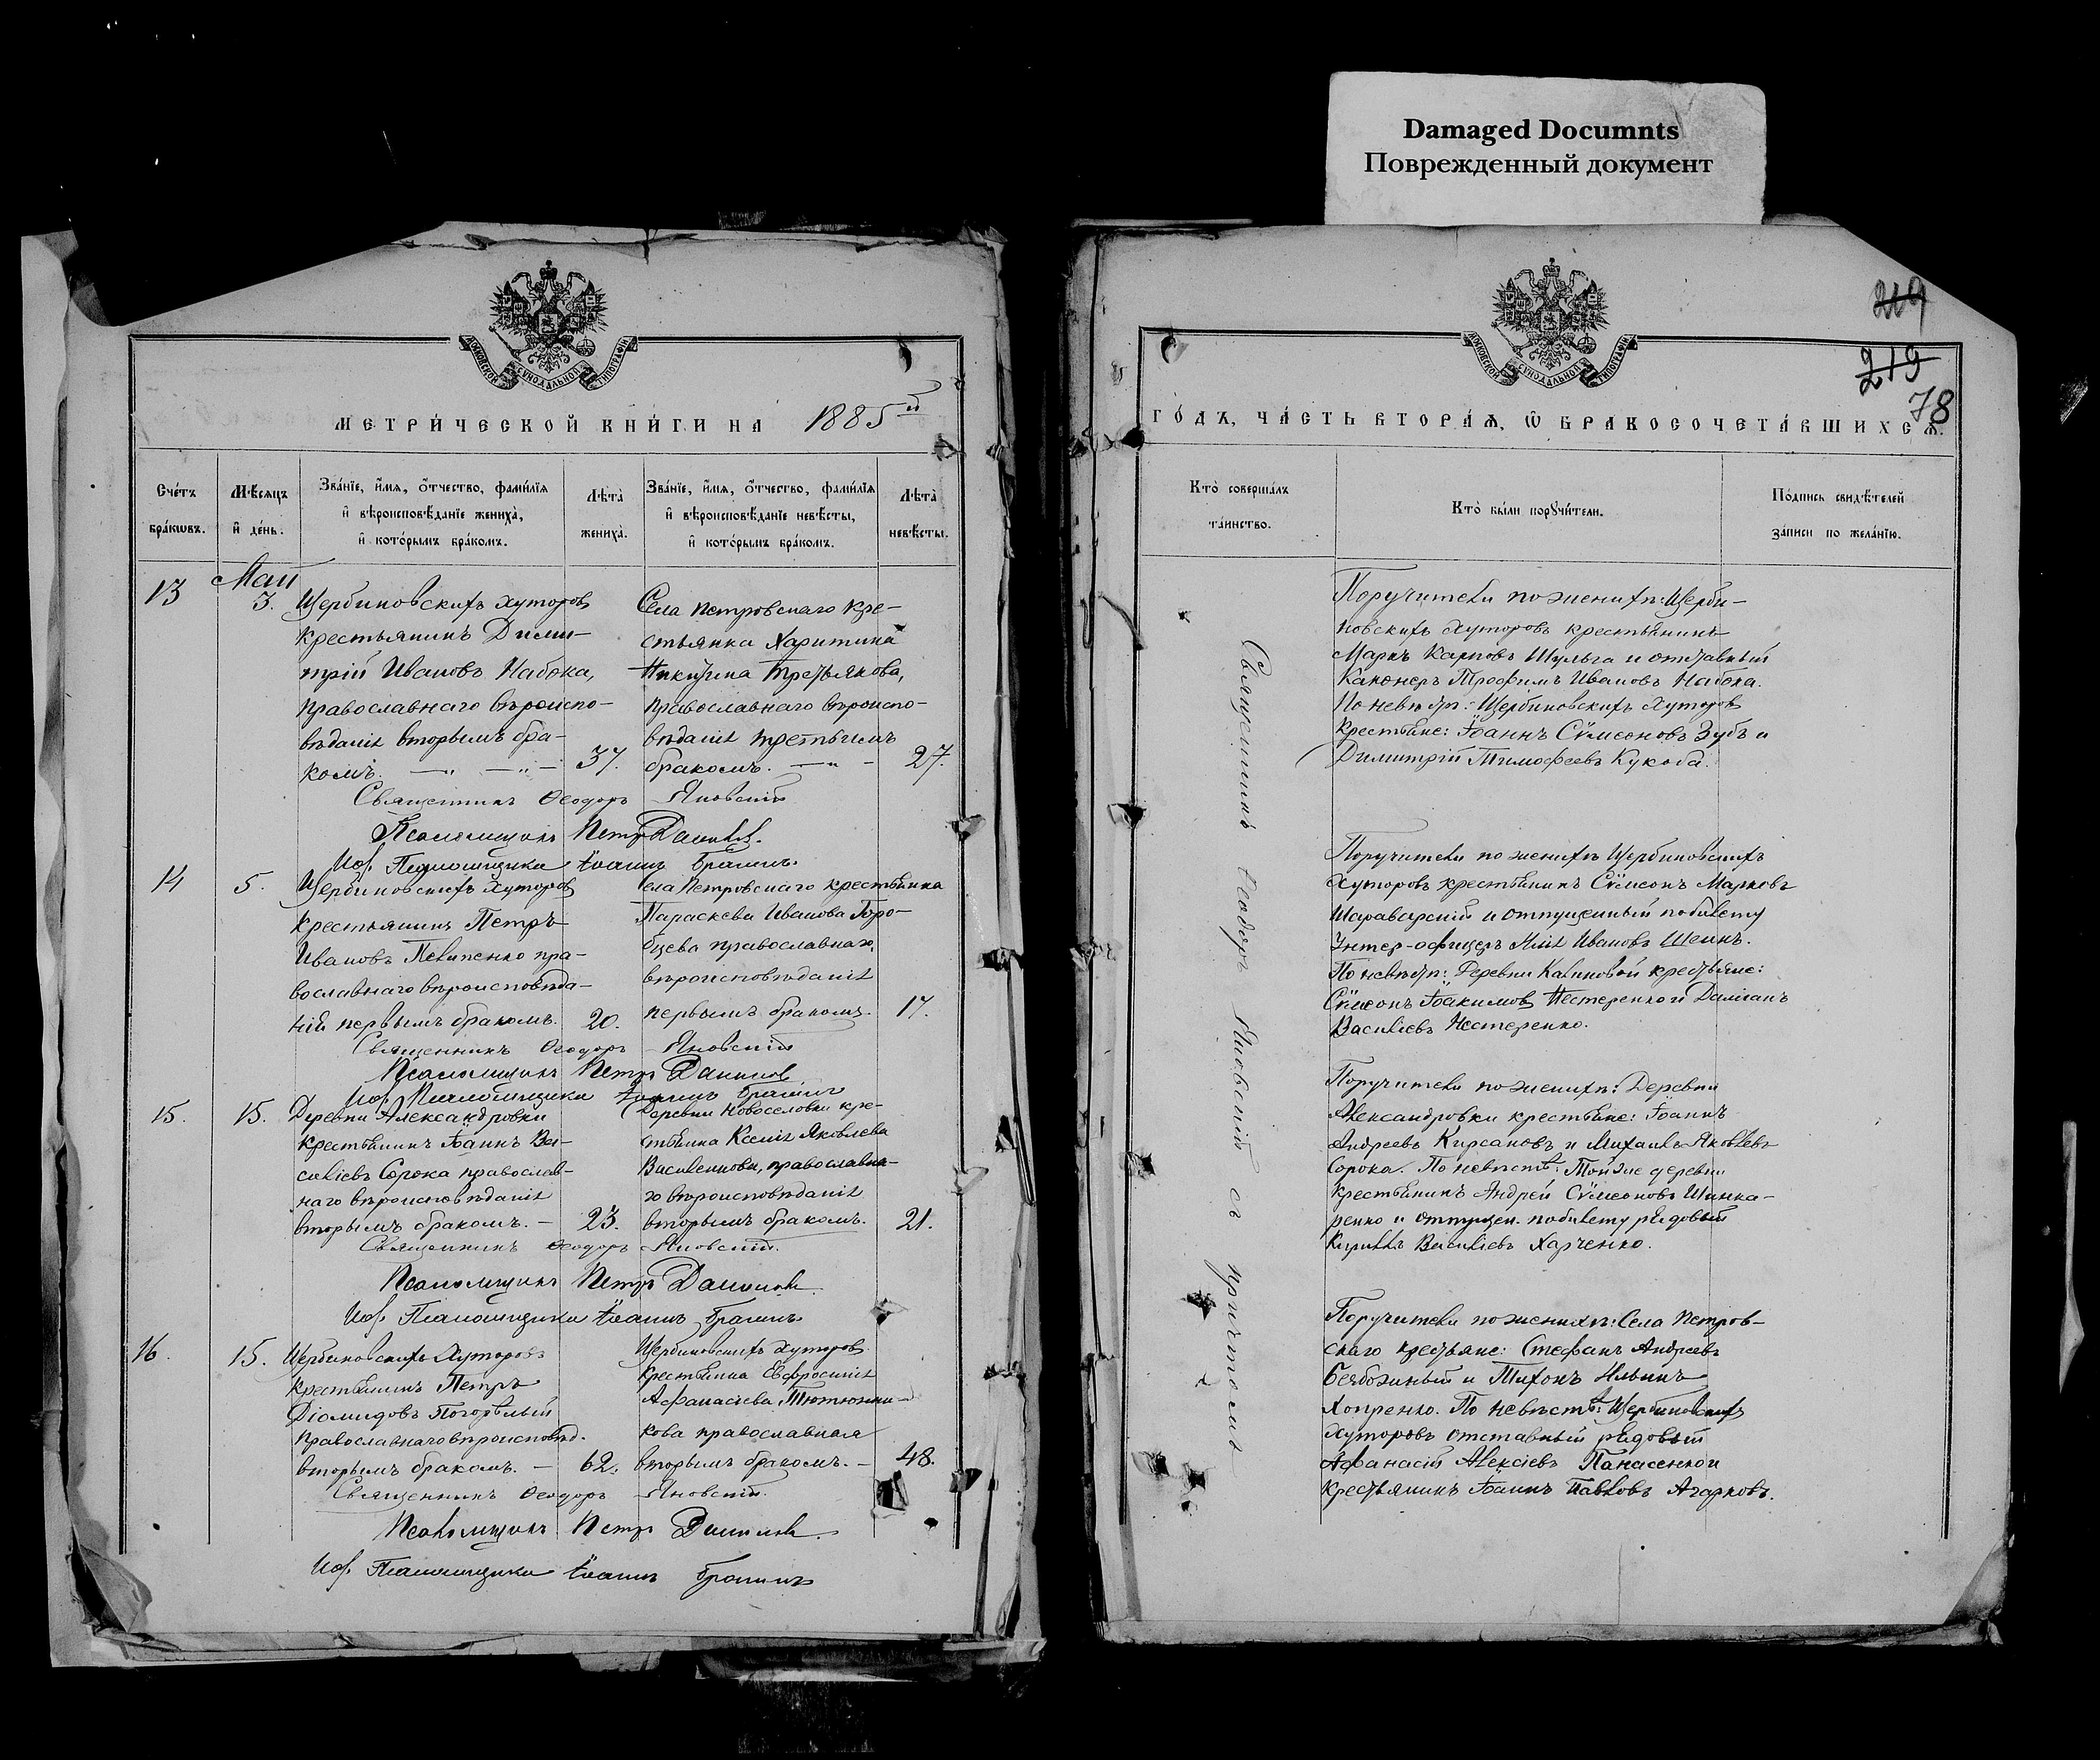 Damaged Documnts
Поврежденный документ
МОСКОВСКОЙ СѴНОДАЛЬНОЙ ТИПОГРАФІИ
МЕТРИ́ЧЕСКОЙ КНИ́ГИ НА 1885й
Сче́тъ бра́кѡвъ.
Мѣ́сяцъ и҆ де́нь.
Зва́нїе, и҆́мѧ, ѻ҆́тчество, фамѝлїѧ
и҆ вѣроисповѣ́данїе жениха̀,
и҆ кото́рымъ бра́комъ.
Лѣта̀ жениха̀.
Зва́нїе, и҆́мѧ, ѻ҆́тчество, фамѝлїѧ
и҆ вѣроисповѣ́данїе невѣ́сты,
и҆ кото́рымъ бра́комъ.
Лѣта̀ невѣ́сты.
Май
13
3.
Щербиновскихъ хуторовъ
крестьянинъ Дими-
трій Ивановъ Набока,
православнаго вѣроиспо-
вѣданія вторымъ бра-
комъ.
37.
Села Петровскаго кре-
стьянка Харитина
Никитина Третьякова,
православнаго вѣроиспо-
вѣданія третьимъ
бракомъ.
27.
Священникъ Ѳеодоръ Яновскій
Псаломщикъ Петръ Даниловъ
Иоф. Псаломщика Іоаннъ
14
5.
Щербиновскихъ хуторовъ
крестьянинъ Петръ
Ивановъ Пелипенко пра-
вославнаго вѣроисповѣда-
нія первымъ бракомъ.
20.
Села Петровскаго крестьянка
Параскева Иванова Горо-
бцева православнаго
вѣроисповѣданія
первымъ бракомъ.
17.
Священникъ Ѳеодоръ Яновскій
Псаломщикъ Петръ Даниловъ
Псаломщика Іоаннъ
15.
15.
Деревни Александровки
крестьянинъ Іоаннъ Ва-
силіевъ Сорока православ-
наго вѣроисповѣданія
вторымъ бракомъ.
23.
Деревни Новоселовки кре-
стьянка Ксенія Яковлева
Василенкова, православна-
го вѣроисповѣданія
вторымъ бракомъ.
21.
Священникъ Ѳеодоръ Яновскій.
Псаломщикъ Петръ Даниловъ
Псаломщика Іоаннъ
16.
15.
Щербиновскихъ хуторовъ
крестьянинъ Петръ
Діомидовъ Погорѣлый
православнаго вѣроисповѣд.
вторымъ бракомъ.
62.
Щербиновскихъ хуторовъ
крестьянка Евфросинія
Афанасіева Тютюнни-
кова православная
вторымъ бракомъ.
48.
Священникъ Ѳеодоръ Яновскій.
Псаломщикъ Петръ Даниловъ
Псаломщика Іоаннъ
219
219
78
МОСКОВСКОЙ СѴНОДАЛЬНОЙ ТИПОГРАФІИ
ГО́ДЪ, ЧА́СТЬ ВТОРА́Ѧ, Ѡ҆ БРАКОСОЧЕТА́ВШИХСѦ.
Кто̀ соверша́лъ
та́инство.
Кто̀ бы́ли порꙋчи́тели.
По́дпись свидѣ́телей
за́писи по жела́нїю.
Священникъ Ѳеодоръ Яновскій съ причтомъ
Поручители по женихѣ: Щерби-
новскихъ хуторовъ крестьянинъ
Маркъ Карповъ Шульга и отставный
Канонеръ Трофимъ Ивановъ Набока.
По невѣстѣ: Щербиновскихъ хуторовъ
крестьяне: Іоаннъ Сѵмеоновъ Зубъ и
Димитрій Тимофеевъ Кукоба.
Поручители по женихѣ Щербиновскихъ
хуторовъ крестьянинъ Сѵмеонъ Марковъ
Шараварскій и отпущенный по билету
Унтер-офицеръ Илія Ивановъ Шеинъ.
По невѣстѣ: Деревни Калиновой крестьяне:
Сѵмеонъ Іоакимовъ Нестеренко и Даміанъ
Василіевъ Нестеренко.
Поручители по женихѣ: Деревни
Александровки крестьяне: Іоаннъ
Андреевъ Кирсановъ и Михаилъ Яковлевъ
Сорока. По невѣстѣ: Той же деревни
крестьянинъ Андрей Сѵмеоновъ Шинка-
ренко и отпущен. по билету рядовый
Кириллъ Василіевъ Харченко.
Поручители по женихѣ: Села Петров-
скаго крестьяне: Стефанъ Андреевъ
Безбожный и Тихонъ Ильинъ
Хопренко. По невѣстѣ: Щербиновскихъ
хуторовъ отставный рядовый
Афанасій Алексіевъ Панасенко и
крестьянинъ Іоаннъ Павловъ Агарковъ.